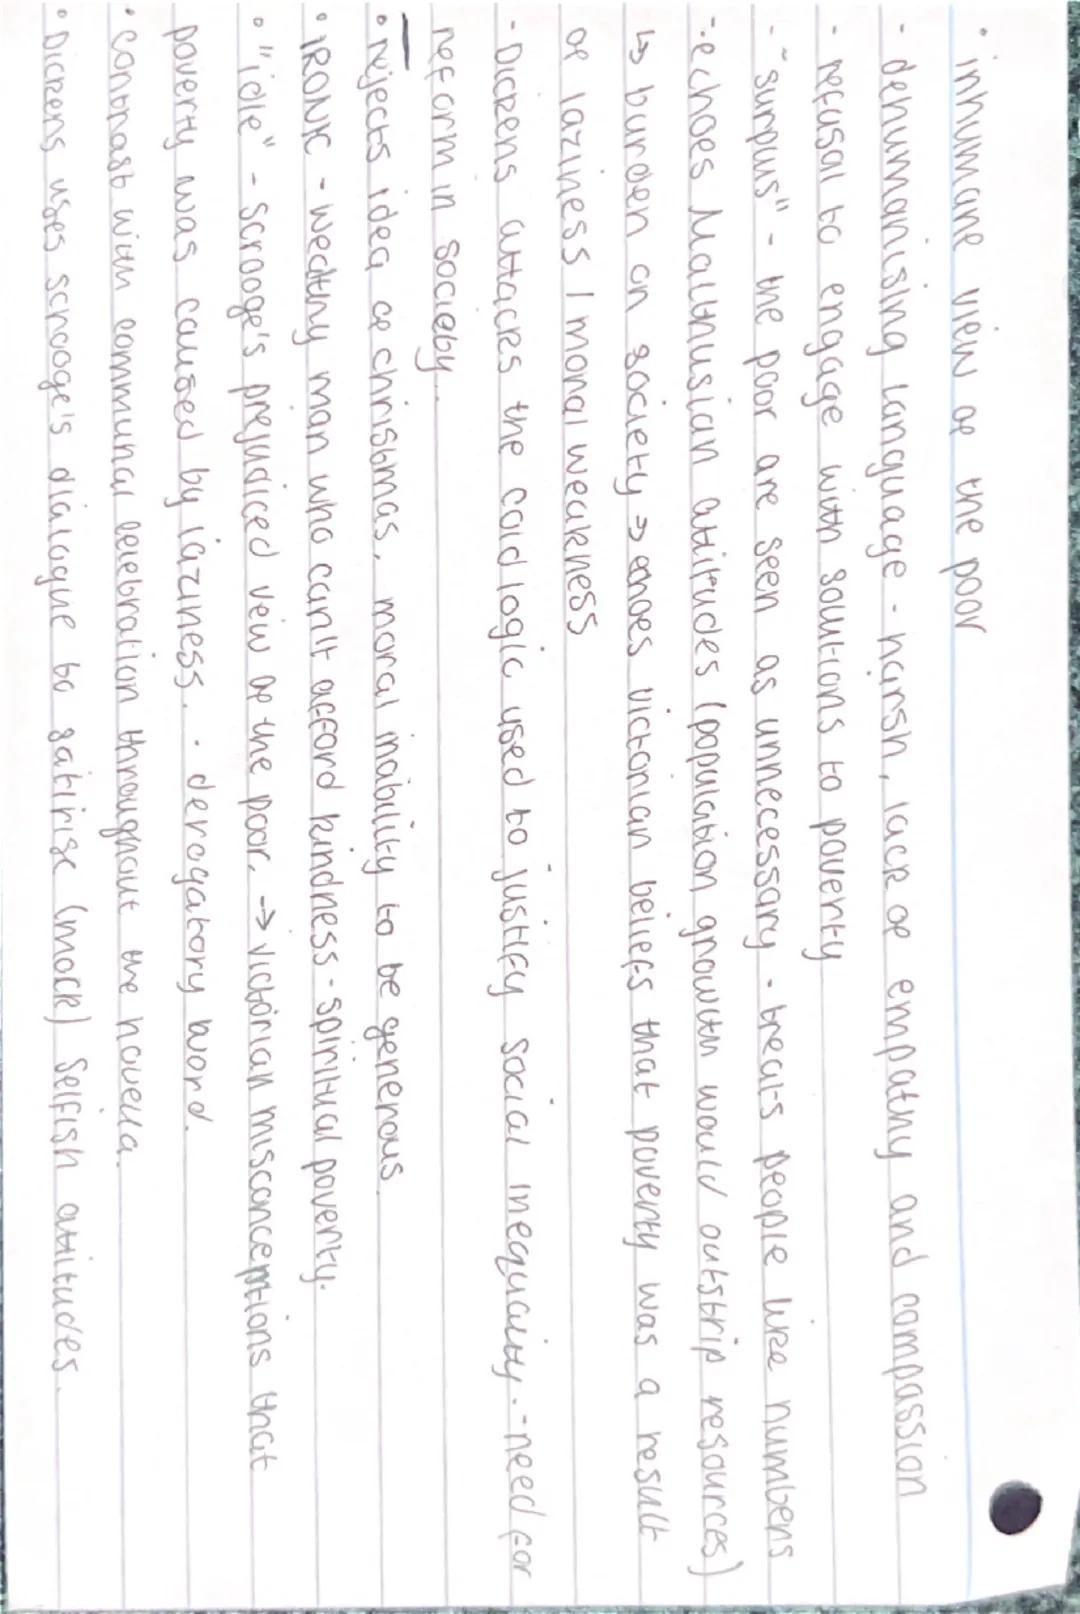 • inhumane view of the poor
- dehumanising language - harsh, lack of empathy and compassion
- refusal to engage with soultions to poverty
- "surpus" - the poor are seen as unnecessary - treats people like numbers
- echoes Malthusian attitudes (population growth would outstrip resources)
↳ burden on society → echoes victorian beliefs that poverty was a result
of laziness / moral weakness
- Dickens attacks the cold logic used to justify social inequality. - need for
reform in society.
• rejects idea of christmas, moral inability to be generous.
• IRONIC - wealthy man who can't afford kindness - spiritual poverty.
• "idle" - scrooge's prejudiced veiw of the poor. → victorian misconceptions that
poverty was caused by laziness. • derogatory word.
• contrast with communal celebration throughout the novella.
• Dickens uses scrooge's dialogue to satirise (mock) selfish attitudes.